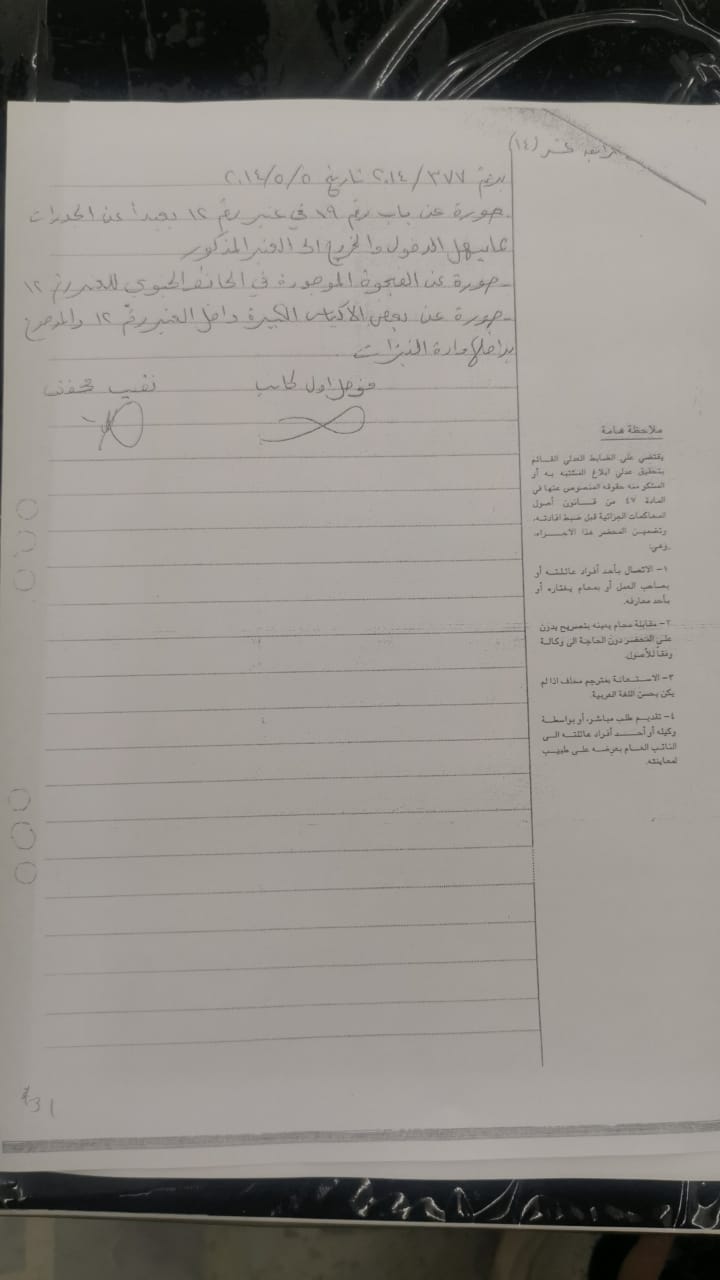 رابعة عشر (١٤)
برقم ٣٧٧/٢٠١٤ تاريخ ٢٠١٤/٥/٥
- صورة عن باب رقم ١٩ في عنبر رقم ١٢ بعيداً عن الجدران
مما يسهل الدخول والخروج الى العنبر المذكور
- صورة عن الفجوة الموجودة في الحائط الجنوبي للعنبر رقم ١٢
- صورة عن بعض الأكياس الكبيرة داخل العنبر رقم ١٢ والموضوع
بداخلها مادة النيترات .
اول كاتب
نقيب محقق
ملاحظة هامة
يقتضي على الضابط العدلي القائم
بتحقيق عدلي ابلاغ المشتبه به أو
المشكو منه حقوقه المنصوص عنها في
المادة ٤٧ من قانون أصول
المحاكمات الجزائية قبل ضبط افادته،
وتضمين المحضر هذا الاجراء،
وهي:
١- الاتصال بأحد أفراد عائلته أو
بصاحب العمل أو بمحام يختاره أو
بأحد معارفه.
٢- مقابلة محام يعينه بتصريح يدون
على المحضر دون الحاجة الى وكالة
وفقاً للأصول.
٣- الاستعانة بمترجم محلف اذا لم
يكن يحسن اللغة العربية.
٤- تقديم طلب مباشر، أو بواسطة
وكيله أو أحد أفراد عائلته الى
النائب العام بعرضه على طبيب
لمعاينته.